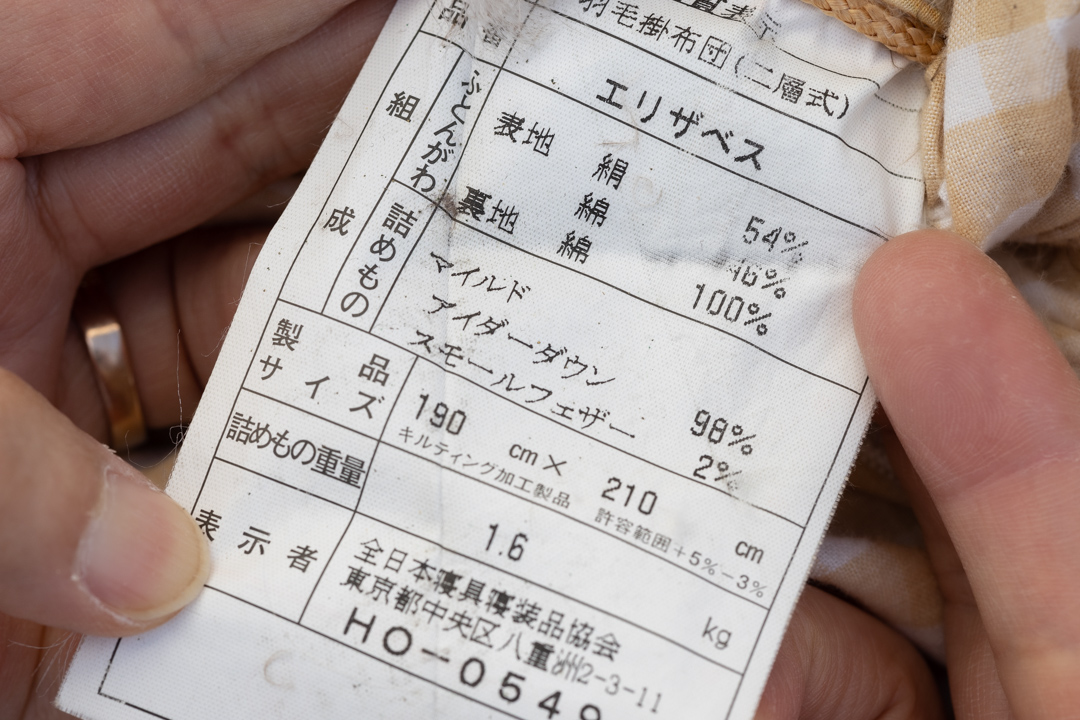 羽毛掛布団(二層式)
組成
ふとんがわ
エリザベス
表地 絹 54%
綿 46%
裏地 綿 100%
詰めもの
マイルド
アイダーダウン 98%
スモールフェザー 2%
製品サイズ
190 cm × 210 cm
キルティング加工製品 許容範囲+5%-3%
詰めもの重量
1.6 kg
表示者
全日本寝具寝装品協会
東京都中央区八重洲2-3-11
HO-0549